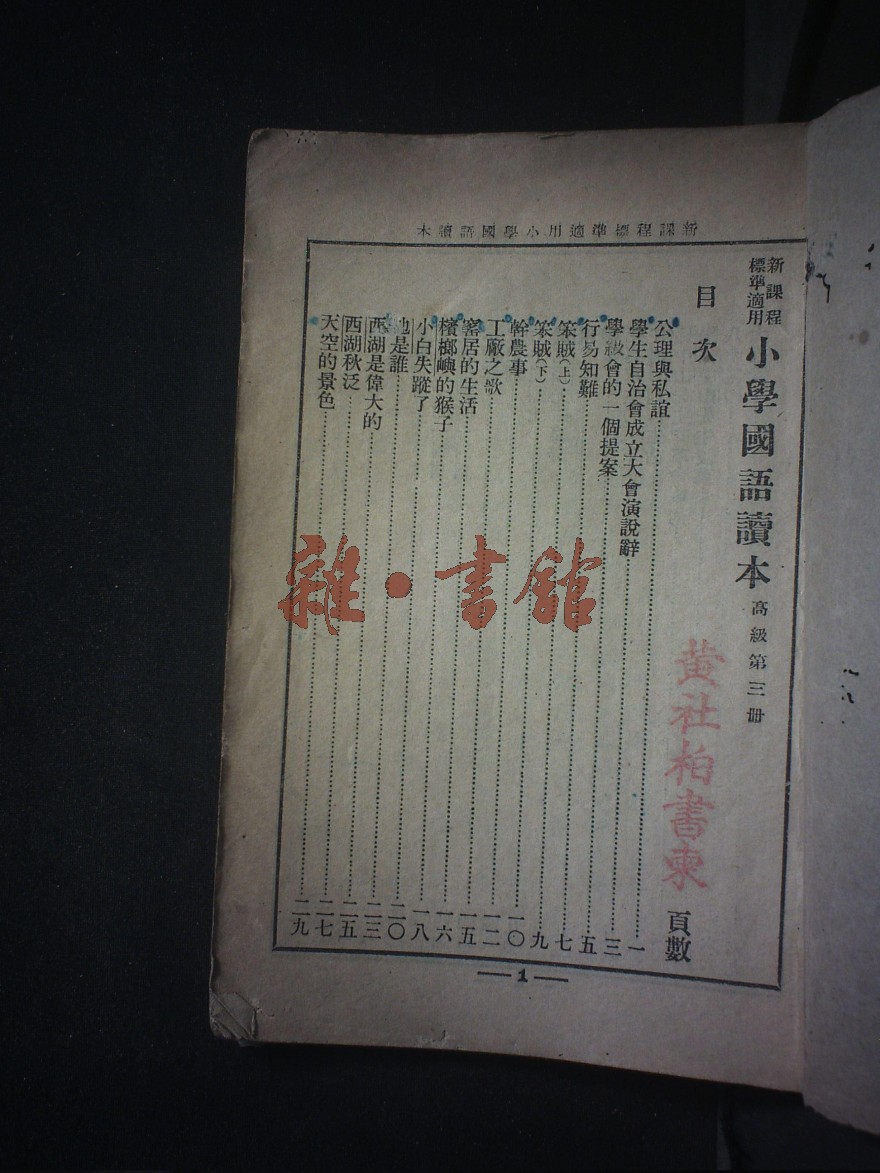 新課程標準適用小學國語讀本
新課程
標準適用
小學國語讀本 高級第三冊
目次
頁數
公理與私誼……一
學生自治會成立大會演說辭……三
學級會的一個提案……五
行易知難……七
笨賊(上)……九
笨賊(下)……一〇
幹農事……一二
工廠之歌……一五
窰居的生活……一六
檳榔嶼的猴子……一八
小白失蹤了……二〇
是誰……二三
西湖是偉大的……二五
西湖秋泛……二七
天空的景色……二九
1
雜·書館
黄社柏書柬